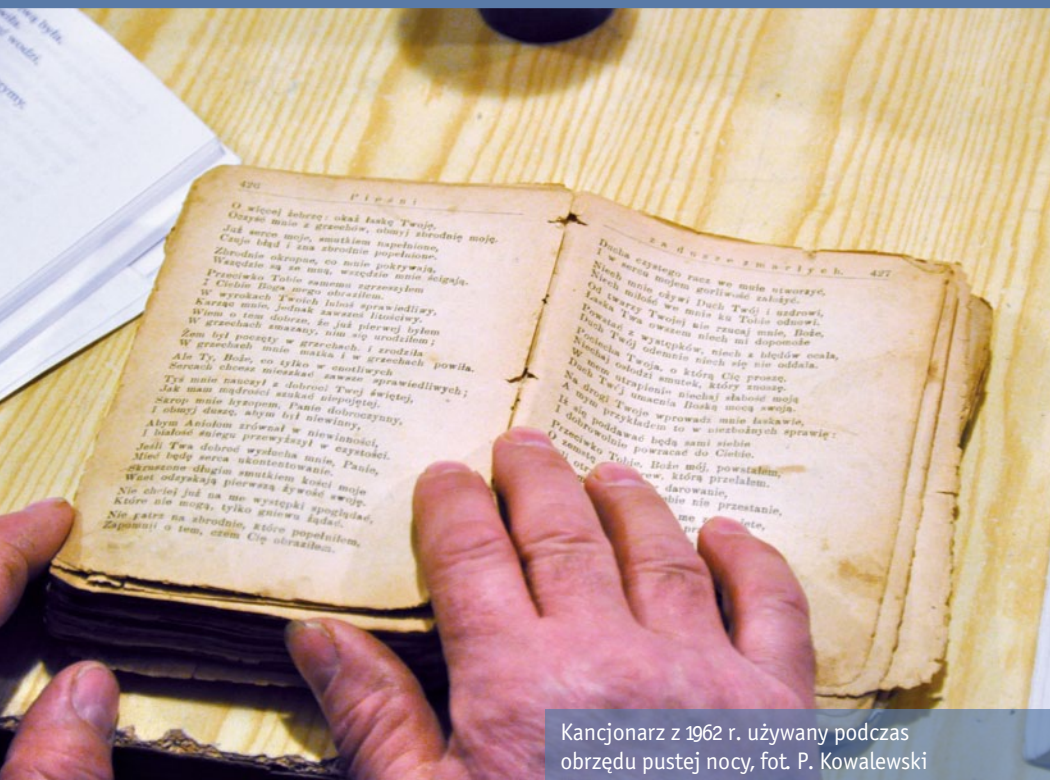 ową była,
wodzi,
rzymy,
426
Pieśni
O więcej żebrzę: okaż łaskę Twoję,
Oczyść mnie z grzechów, obmyj zbrodnię moję.
Już serce moje, smutkiem napełnione,
Czuje błąd i zna zbrodnie popełnione.
Zbrodnie okropne, co mnie pokrywają,
Wszędzie są ze mną, wszędzie mnie ścigają.
Przeciwko Tobie samemu zgrzeszyłem
I Ciebie Boga mego obraziłem.
W wyrokach Twoich luboś sprawiedliwy,
Karząc mnie, jednak zawsześ litościwy.
Wiem o tem dobrze, że już pierwej byłem
W grzechach zmazany, nim się urodziłem;
Żem był poczęty w grzechach, i zrodziła
W grzechach mnie matka i w grzechach powiła.
Ale Ty, Boże, co tylko w cnotliwych
Sercach chcesz mieszkać zawsze sprawiedliwych;
Tyś mnie nauczył z dobroci Twej świętej,
Jak mam mądrości szukać niepojętej.
Skrop mnie hyzopem, Panie dobroczynny,
I obmyj duszę, abym był niewinny,
Abym Aniołom zrównał w niewinności,
I białość śniegu przewyższył w czystości.
Jeśli Twa dobroć wysłucha mnie, Panie,
Mieć będę serca ukontentowanie.
Skruszone długim smutkiem kości moje
Wnet odzyskają pierwszą żywość swoję.
Nie chciej już na me występki spoglądać,
Które nie mogą, tylko gniewu żądać.
Nie patrz na zbrodnie, które popełniłem,
Zapomnij o tem, czem Cię obraziłem.
za dusze zmarłych.
427
Ducha czystego racz we mnie utworzyć,
I w sercu mojem gorliwość założyć.
Niech mnie ożywi Duch Twój i uzdrowi,
Niech miłość we mnie ku Tobie odnowi.
Od twarzy Twojej nie rzucaj mnie, Boże,
Łaska Twa owszem niech mi dopomoże
Powstać z występków, niech z błędów ocala,
Duch Twój odemnie niech się nie oddala.
Pociecha Twoja, o którą Cię proszę,
Niechaj osłodzi smutek, który znoszę.
W mem strapienie niechaj słabość moją
Duch Twój umacnia Boską mocą swoją.
Na drogi Twoje wprowadź mnie łaskawie,
A mym przykładem to w niezbożnych sprawię:
Iż się poddawać będą sami siebie
I dobrowolnie powracać do Ciebie.
Przeciwko Tobie, Boże mój, powstałem,
O zemstę krew, którą przelałem.
darowanie,
nie przestanie,
me
Kancjonarz z 1962 r. używany podczas
obrzędu pustej nocy, fot. P. Kowalewski